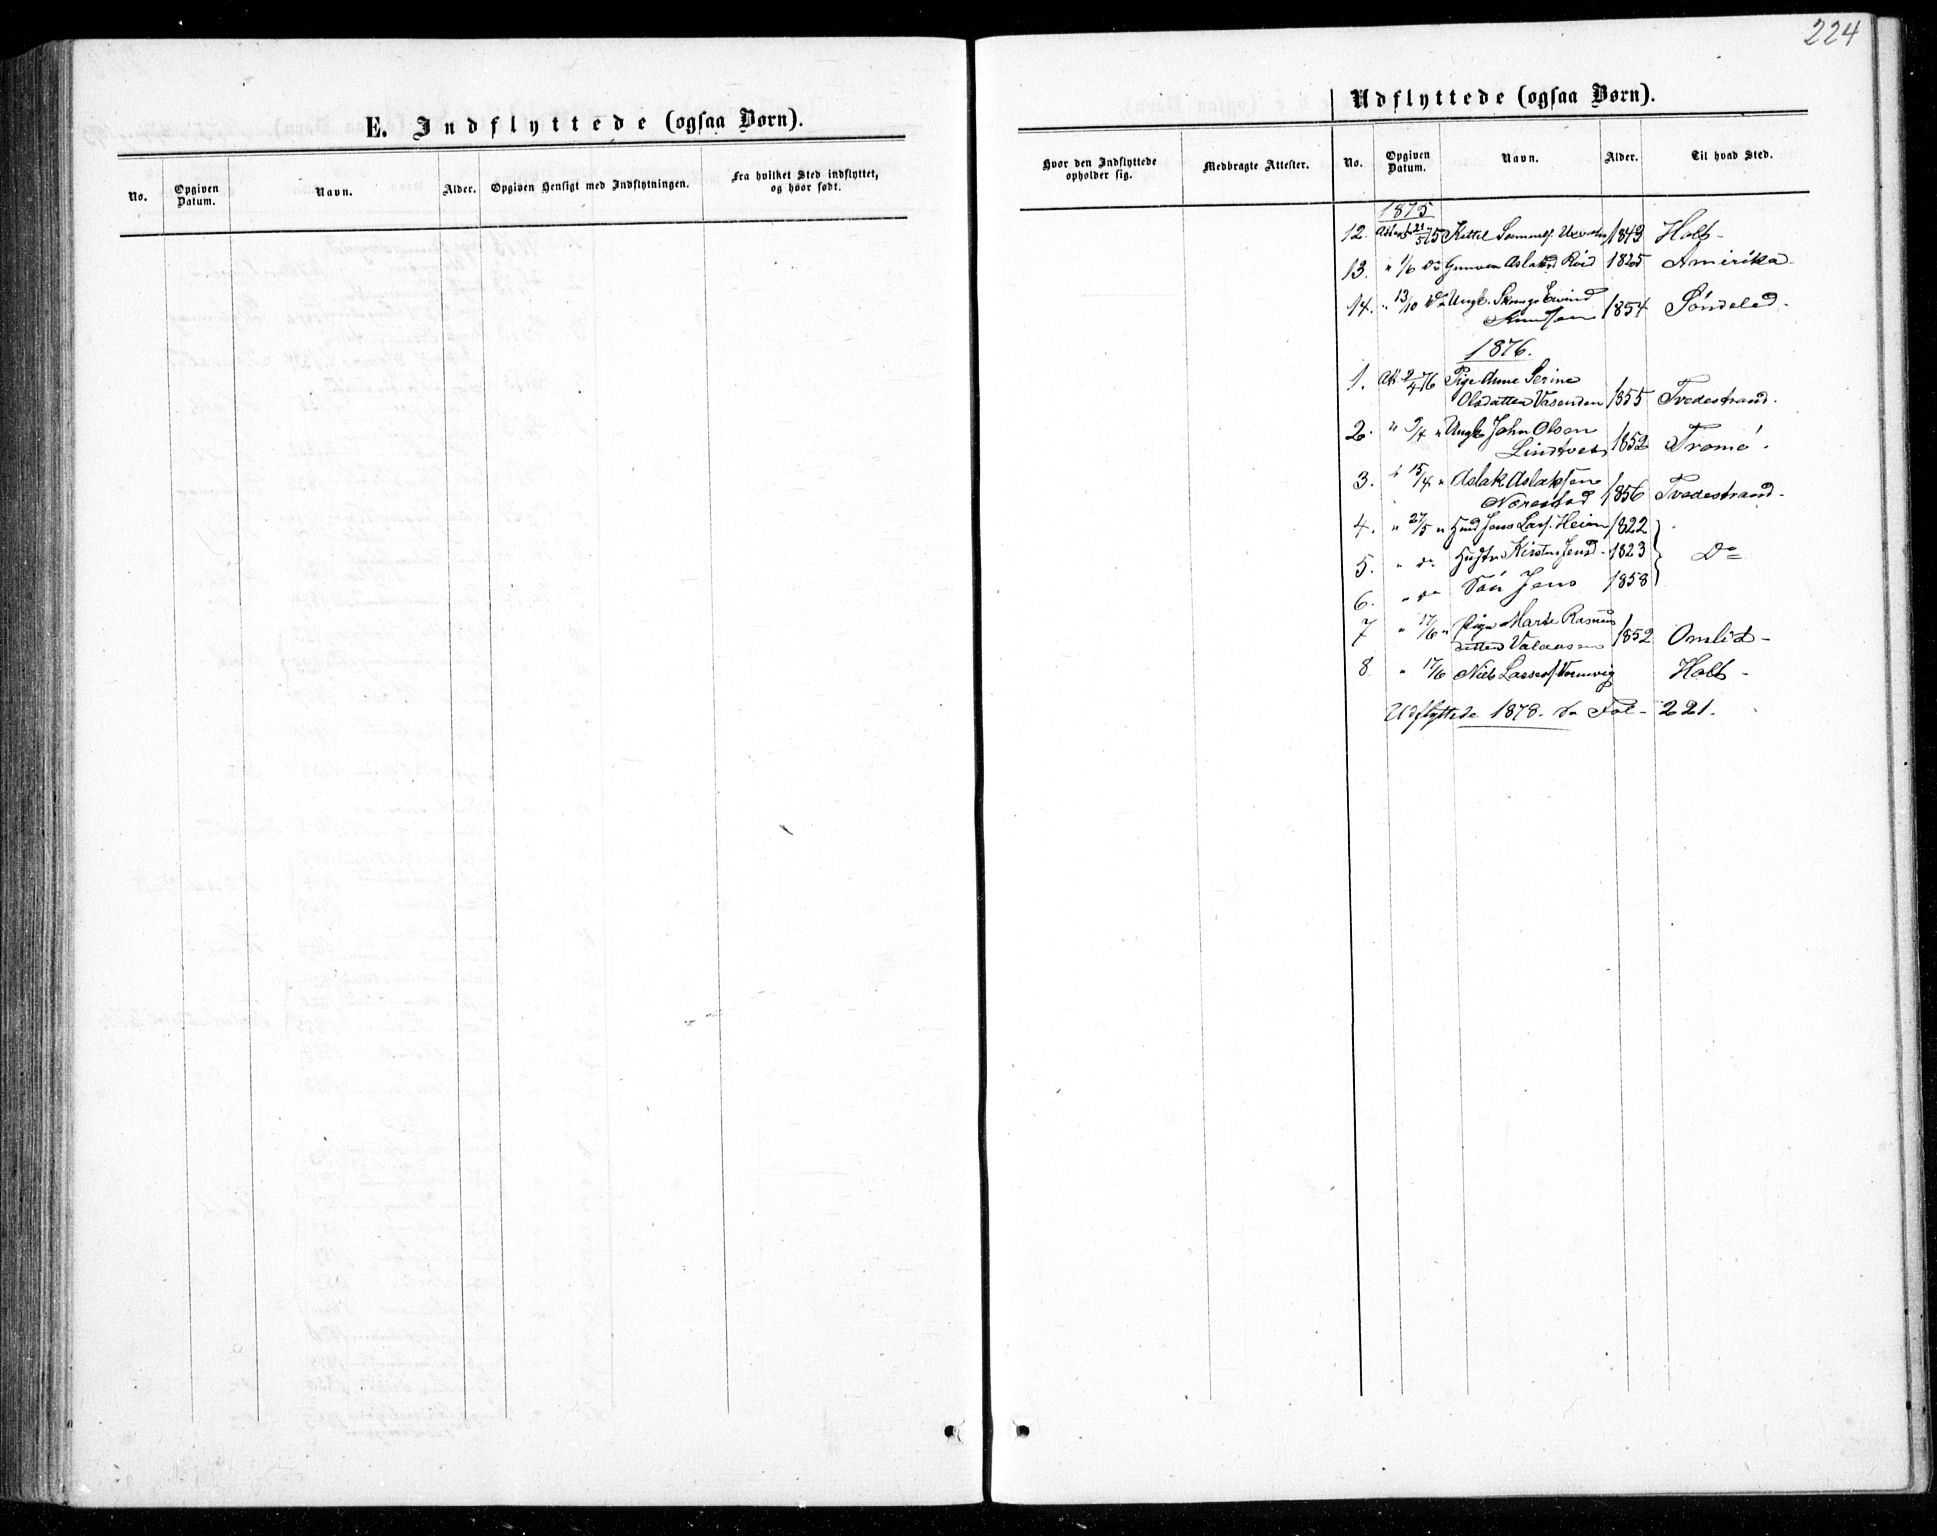 224
E. Indflyttede (ogsaa Børn).
No.
Opgiven Datum.
Navn.
Alder.
Opgiven Hensigt med Indflytningen.
Fra hvilket Sted indflyttet, og hvor født.
Udflyttede (ogsaa Børn).
Hvor den Indflyttede opholder sig.
Medbragte Attester.
No.
Opgiven Datum.
Navn.
Alder.
Til hvad Sted.
1875
12. 21/5 75 Kittel 1843 Holt -
13. " 1/6 do Gunvor Aslaksd Röed 1825 Amerika -
14. " 13/10 do Ungk. Eivind
Knudsen 1854 Söndeled -
1876.
1. Att 2/4 76 Pige Anne Serine
Olsdatter Vasenden 1855 Tvedestrand.
2. " 9/4 " Ungk John Olsen
Lindtveit 1852 Tromö.
3. " 15/4 " Aslak Aslaksen
Nærestad 1856 Tvedestrand -
4. " 27/5 " Husf Jens Lars. Heien 1822
5. " do Hustr. Kirsten Jensd - 1823 } Do
6. " do Sön Jens 1858
7 " 17/6 " Pige Marte Rasmus
datter 1852 Omlid -
8 " 17/6 Niels Larsen Holt -
Udflyttede 1878. se Fol - 221.